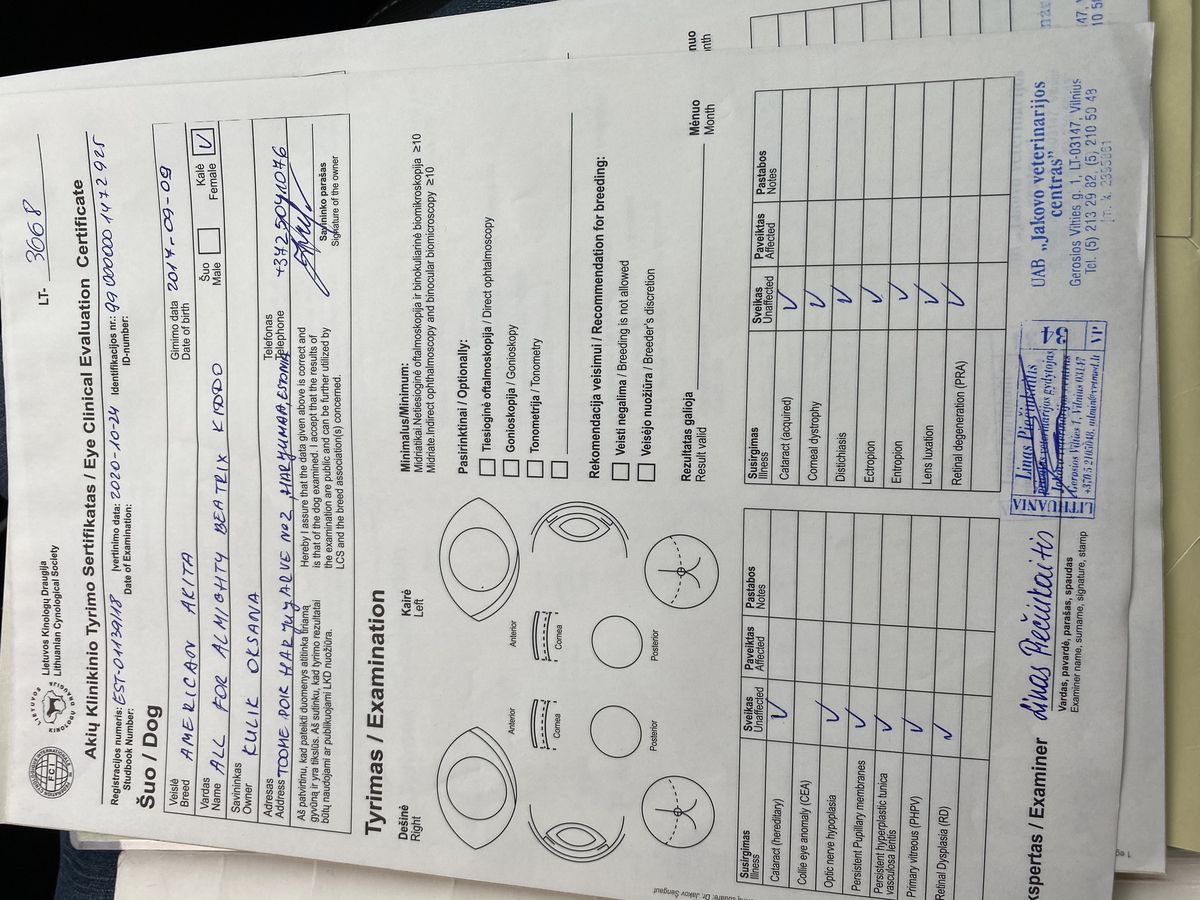 LT- 3668
LIETUVOS KINOLOGŲ DRAUGIJA
FEDERATION CYNOLOGIQUE INTERNATIONALE
FCI
Lietuvos Kinologų Draugija
Lithuanian Cynological Society
Akių Klinikinio Tyrimo Sertifikatas / Eye Clinical Evaluation Certificate
Registracijos numeris: EST-01139/18 Įvertinimo data: 2020-10-24 Identifikacijos nr.: 99 000000 1472 925
Studbook Number: Date of Examination: ID-number:
Šuo / Dog
Veislė
Breed AMERICAN AKITA
Gimimo data
Date of birth 2017-09-09
Vardas
Name ALL FOR ALMIGHTY BEATRIX KIDDO
Šuo
Male
Kalė
Female V
Savininkas
Owner KULIK OKSANA
Adresas
Address TOOME POIK HARJU JARVE NO2, HARJUMAA, ESTONIA
Telefonas
Telephone +37250411076
Aš patvirtinu, kad pateikti duomenys atitinka tiriamą
gyvūną ir yra tikslūs. Aš sutinku, kad tyrimo rezultatai
būtų naudojami ar publikuojami LKD nuožiūra.
Hereby I assure that the data given above is correct and
is that of the dog examined. I accept that the results of
the examination are public and can be further utilized by
LCS and the breed association(s) concerned.
Savininko parašas
Signature of the owner
Tyrimas / Examination
Dešinė
Right
Kairė
Left
Anterior
Anterior
Cornea
Cornea
Posterior
Posterior
Minimalus/Minimum:
Midriatikai.Netiesioginė oftalmoskopija ir binokuliarinė biomikroskopija ≥10
Midriate.Indirect ophthalmoscopy and binocular biomicroscopy ≥10
Pasirinktinai / Optionally:
Tiesioginė oftalmoskopija / Direct ophtalmoscopy
Gonioskopija / Gonioskopy
Tonometrija / Tonometry
Rekomendacija veisimui / Recommendation for breeding:
Veisti negalima / Breeding is not allowed
Veisėjo nuožiūra / Breeder's discretion
Rezultatas galioja
Result valid
Mėnuo
Month
Susirgimas
Illness
Sveikas
Unaffected
Paveiktas
Affected
Pastabos
Notes
Cataract (hereditary) V
Collie eye anomaly (CEA)
Optic nerve hypoplasia V
Persistent Pupillary membranes V
Persistent hyperplastic tunica
vasculosa lentis V
Primary vitreous (PHPV) V
Retinal Dysplasia (RD) V
Susirgimas
Illness
Sveikas
Unaffected
Paveiktas
Affected
Pastabos
Notes
Cataract (acquired) V
Corneal dystrophy V
Distichiasis V
Ectropion V
Entropion V
Lens luxation V
Retinal degeneration (PRA) V
kspertas / Examiner Linas Piečiuktaitis
Vardas, pavardė, parašas, spaudas
Examiner name, surname, signature, stamp
LITHUANIA
LITHUANIA
VP
veterinarijos gydytojas
Gerosios Vilties 1, Vilnius 03147
UAB „Jakovo veterinarijos
centras"
Gerosios Vilties g. 1, LT-03147, Vilnius
Tel. (5) 213 29 82, (5) 210 50 48
nuo
nth